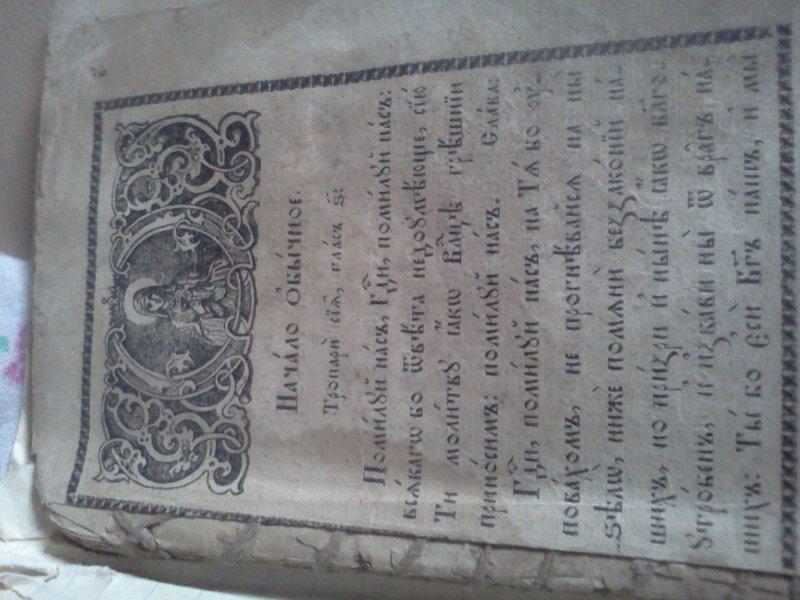 Нача́ло Ѻбы́чное.
Тропари̑ сїѧ̑, гла́съ ѕ҃:
Поми́лꙋй на́съ, Гдⷭ҇и, поми́лꙋй на́съ:
всѧ́кагѡ бо ѿвѣ́та недоꙋмѣ́юще, сїю̀
Тѝ моли́твꙋ ꙗ҆́кѡ Влⷣцѣ грѣ́шнїи
прино́симъ: поми́лꙋй на́съ. Сла́ва:
Гдⷭ҇и, поми́лꙋй на́съ, на Тѧ̀ бо ᲂу҆-
пова́хомъ, не прогнѣ́вайсѧ на ны̀
ѕѣлѡ̀, нижѐ помѧнѝ беззако́нїй на́-
шихъ, но при́зри и҆ ны́нѣ ꙗ҆́кѡ бл҃го-
ꙋтро́бенъ, и҆ и҆зба́ви ны̀ ѿ вра̑гъ на́-
шихъ: Ты́ бо є҆сѝ Бг҃ъ на́шъ, и҆ мы̀